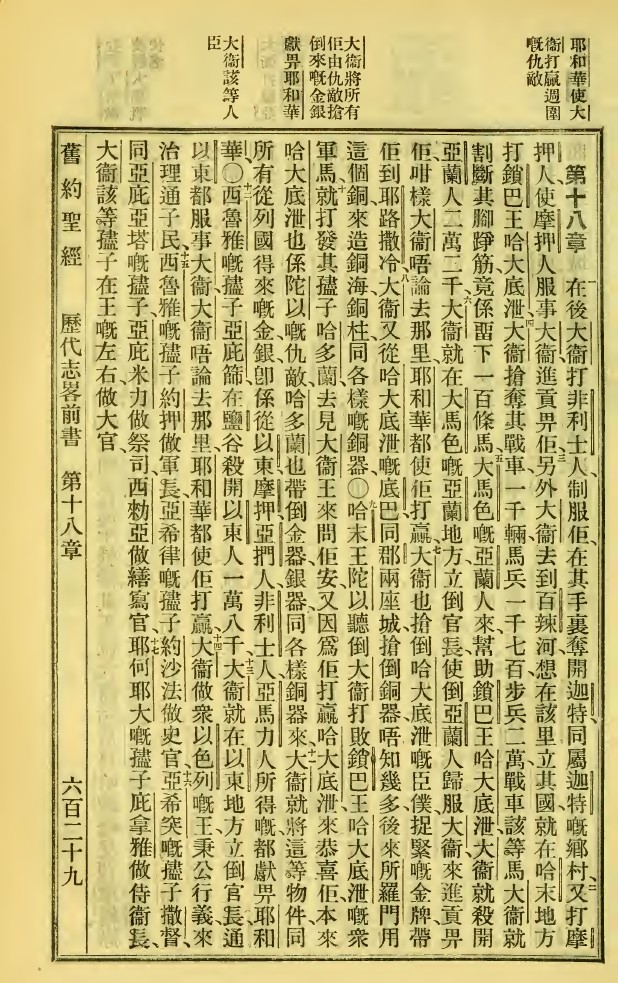 耶和華使大
衞打贏週圍
嘅仇敵
大衞將所有
佢由仇敵搶
倒來嘅金銀
獻畀耶和華
大衞該等人
臣
第十八章 一在後大衞打非利士人、制服佢、在其手裏奪開迦特、同屬迦特嘅鄉村、二又打摩
押人、使摩押人服事大衞進貢畀佢、三另外大衞去到百辣河想在該里立其國、就在哈末地方
打鎖巴王哈大底泄、四大衞搶奪其戰車一千輛、馬兵一千七百、步兵二萬、戰車該等馬大衞就
割斷其腳踭筋、竟係畱下一百條馬、五大馬色嘅亞蘭人來幫助鎖巴王哈大底泄、大衞就殺開
亞蘭人二萬二千、六大衞就在大馬色嘅亞蘭地方立倒官長、使倒亞蘭人歸服大衞、來進貢畀
佢、咁樣大衞唔論去那里耶和華都使佢打贏、七大衞也搶倒哈大底泄嘅臣僕捉緊嘅金牌、帶
佢到耶路撒冷、八大衞又從哈大底泄嘅底巴同郡兩座城搶倒銅器唔知幾多、後來所羅門用
這個銅來造銅海銅柱、同各樣嘅銅器、〇九哈末王陀以聽倒大衞打敗鎖巴王哈大底泄嘅衆
軍馬、十就打發其孻子哈多蘭去見大衞王來問佢安、又因爲佢打贏哈大底泄來恭喜佢、本來
哈大底泄也係陀以嘅仇敵、哈多蘭也帶倒金器銀器、同各樣銅器來、十一大衞就將這等物件同
所有從列國得來嘅金銀、卽係從以東摩押亞捫人非利士人亞馬力人所得嘅、都獻畀耶和
華、〇十二西魯雅嘅孻子亞庇篩在鹽谷殺開以東人一萬八千、十三大衞就在以東地方立倒官長、通
以東都服事大衞、大衞唔論去那里、耶和華都使佢打贏、十四大衞做衆以色列嘅王、秉公行義來
治理通子民、十五西魯雅嘅孻子約押做軍長、亞希律嘅孻子約沙法做史官、十六亞希突嘅孻子撒督、
同亞庇亞塔嘅孻子亞庇米力做祭司、西勑亞做繕寫官、十七耶何耶大嘅孻子庇拿雅做侍衞長、
大衞該等孻子在王嘅左右做大官、
舊約聖經 歷代志畧前書 第十八章 六百二十九